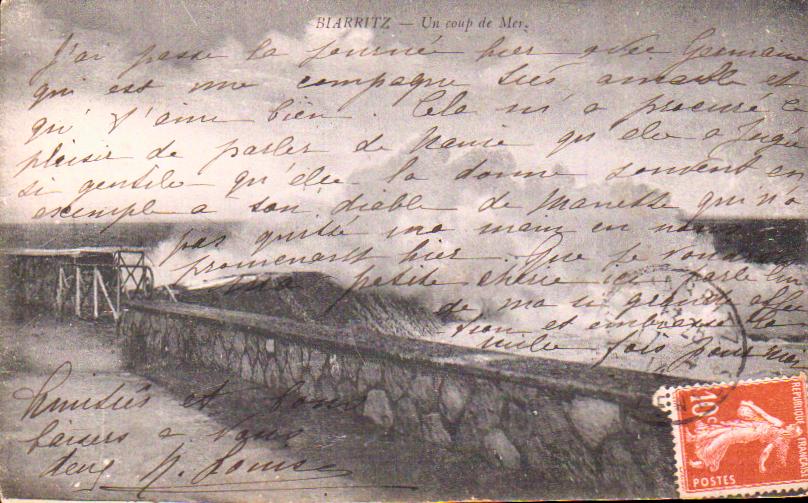 BIARRITZ — Un coup de Mer.
J'ai passé la journée hier avec Germaine
qui est une compagne très aimable et
qu' j'aime bien. Cela m'a procuré le
plaisir de parler de Nanie qu'elle a jugée
si gentille qu'elle la donne souvent en
exemple a son diable de Manette qui n'a
pas quitté ma main en nous
promenant hier. Que je voudrais
ma petite chérie
de ma si grande affec
tion et embrasse la
mille fois pour moi
Amitiés et bons
baisers a vous
deux
10c
REPUBLIQUE FRANÇAISE
POSTES